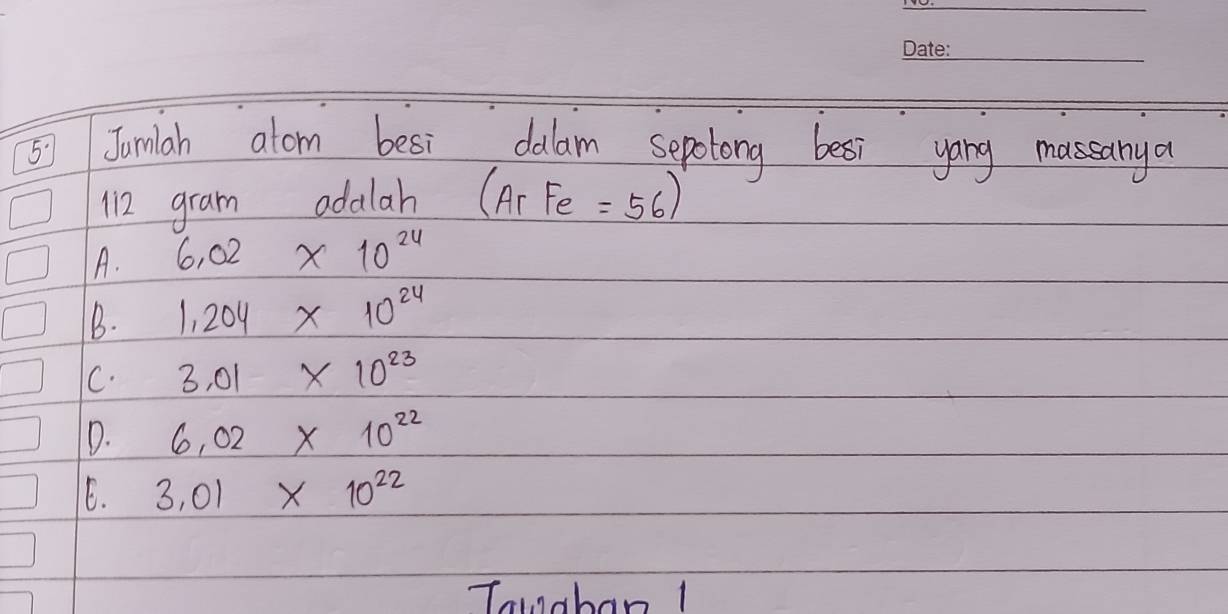 Date:
5. Jumlah atom besi dalam sepotong besi yang massanya
112 gram adalah (Ar Fe = 56)
A. 6,02 × 10²⁴
B. 1,204 × 10²⁴
C. 3,01 × 10²³
D. 6,02 × 10²²
E. 3,01 × 10²²
Jawaban 1